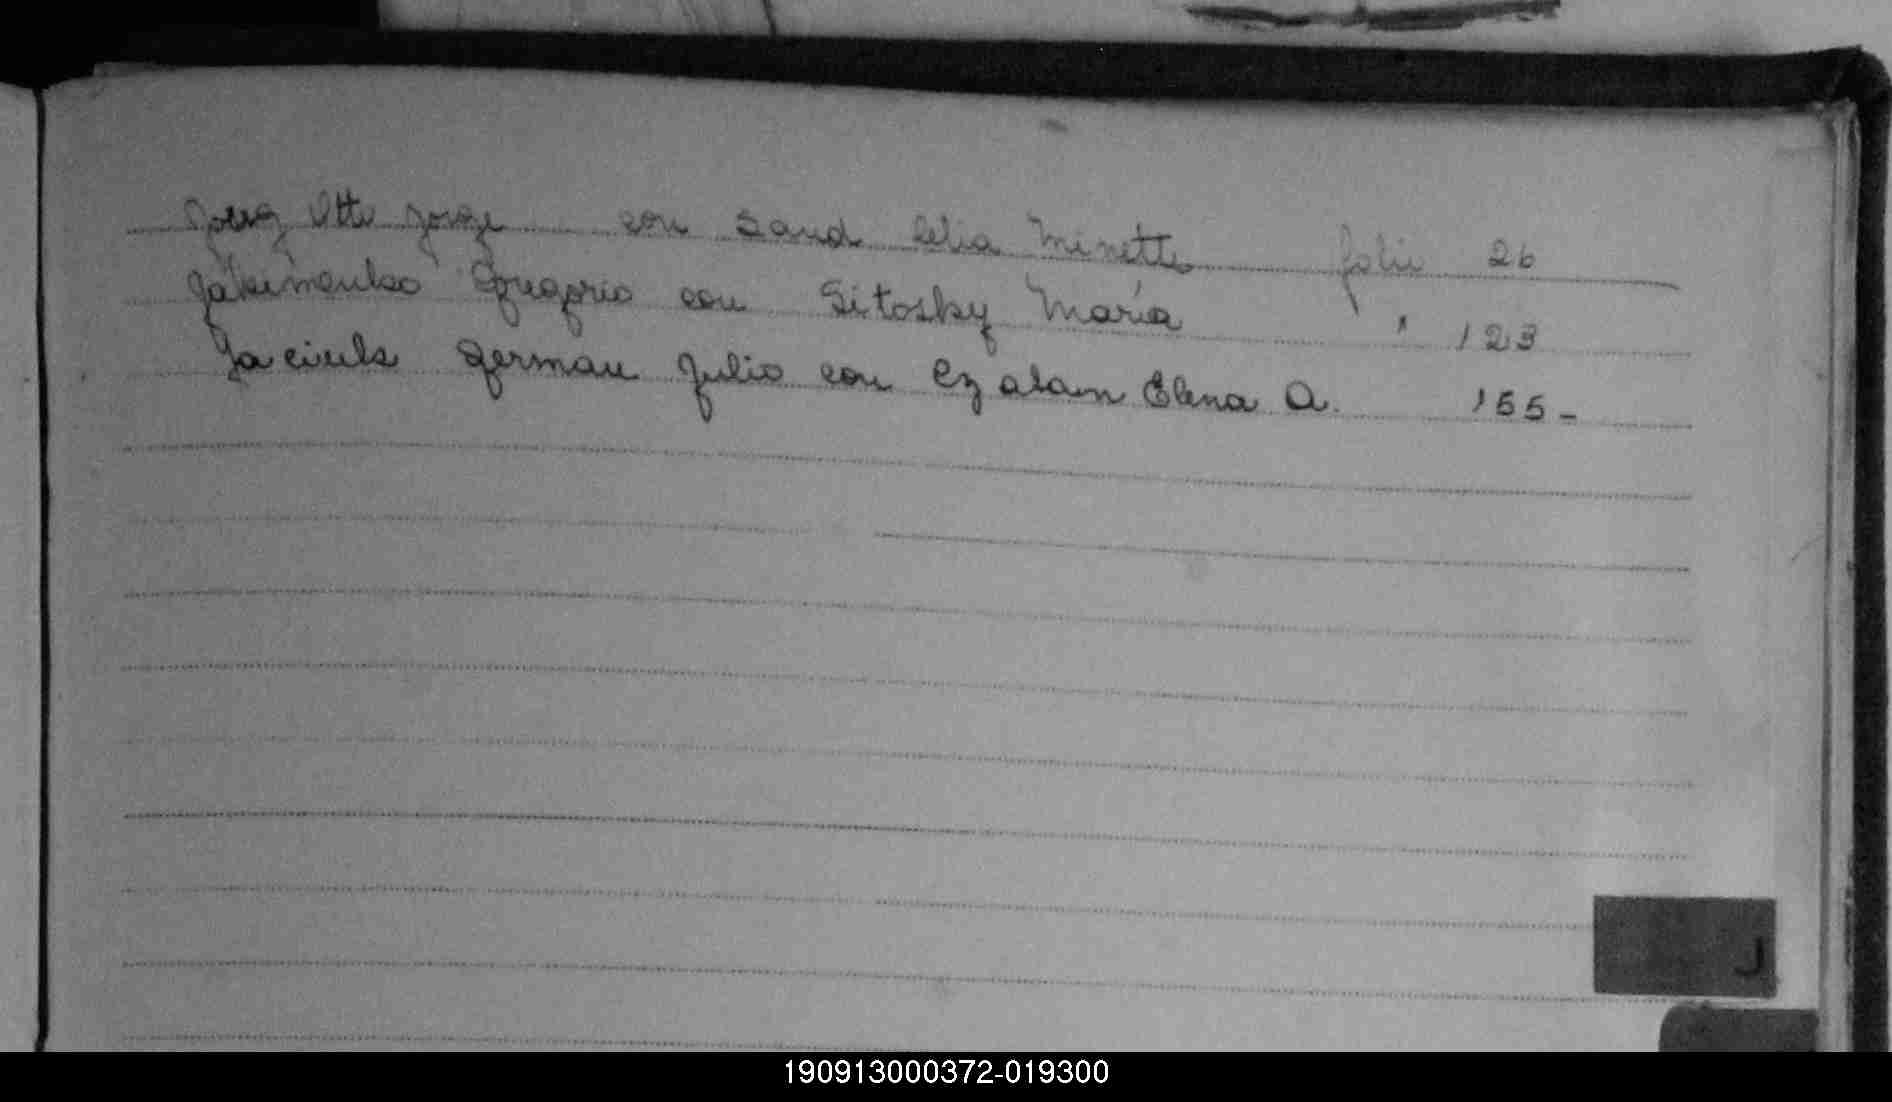 Joerg Otto Jorge con Sand Celia Minetti folio 26
Jakimenko Gregorio con Sitosky María " 123
German Julio con Elena A. 155-
J
190913000372-019300